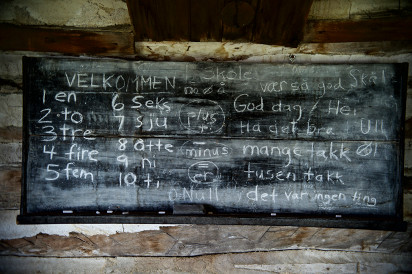 VELKOMMEN Skole vær så god Skål
æ ø å
1 en 6 Seks plus + God dag / Hei
2 to 7 Sju Ha det bra
3 tre 8 åtte minus - mange takk
4 fire 9 ni er = tusen takk
5 fem 10 ti det var ingen ting